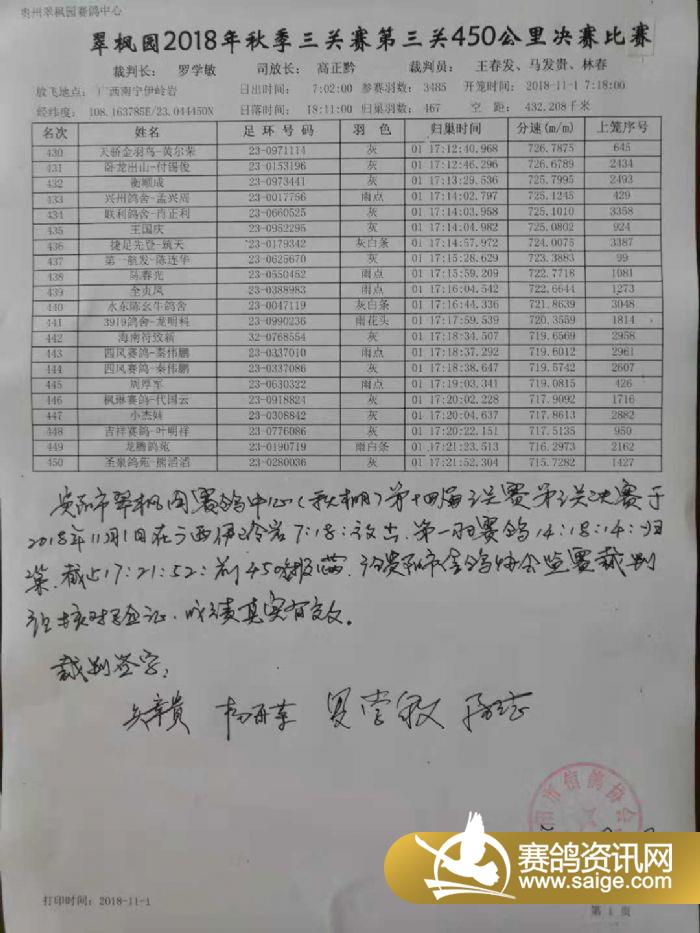 贵州翠枫园赛鸽中心
翠枫园2018年秋季三关赛第三关450公里决赛比赛
裁判长: 罗学敏 司放长: 高正黔 裁判员: 王春发、马发贵、林春
放飞地点: 广西南宁伊岭岩 日出时间: 7:02:00 参赛羽数: 3485 开笼时间: 2018-11-1 7:18:00
经纬度: 108.163785E/23.044450N 日落时间: 18:11:00 归巢羽数: 467 空 距: 432.208千米
名次 姓名 足环号码 羽色 归巢时间 分速(m/m) 上笼序号
430 天骄金羽鸟-黄尔荣 23-0971114 灰 01 17:12:40.968 726.7875 645
431 卧龙出山-付锡俊 23-0153196 灰 01 17:12:46.296 726.6789 2434
432 衡顺成 23-0973441 灰 01 17:13:29.536 725.7995 2493
433 兴州鸽舍-孟兴周 23-0017756 雨点 01 17:14:02.797 725.1245 429
434 联利鸽舍-肖正利 23-0660525 灰 01 17:14:03.958 725.1010 3358
435 王国庆 23-0952295 灰 01 17:14:04.982 725.0802 924
436 捷足先登-筑天 23-0179342 灰白条 01 17:14:57.972 724.0075 3387
437 第一航发-陈连华 23-0625670 灰 01 17:15:28.629 723.3883 99
438 陈春光 23-0550452 雨点 01 17:15:59.209 722.7718 1081
439 全贞凤 23-0388983 雨点 01 17:16:04.542 722.6644 1273
440 水东陈幺牛鸽舍 23-0047119 灰白条 01 17:16:44.336 721.8639 3048
441 3919鸽舍-龙明科 23-0990236 雨花头 01 17:17:59.539 720.3559 1814
442 海南符致新 32-0768554 灰 01 17:18:34.507 719.6569 2958
443 四风赛鸽-秦伟鹏 23-0337010 雨点 01 17:18:37.292 719.6012 2961
444 四风赛鸽-秦伟鹏 23-0337086 灰 01 17:18:38.647 719.5742 2607
445 周厚军 23-0630322 雨点 01 17:19:03.341 719.0815 426
446 枫琳赛鸽-代国云 23-0918824 灰 01 17:20:02.228 717.9098 1716
447 小杰妹 23-0308842 灰 01 17:20:04.637 717.8613 2882
448 吉祥赛鸽-叶明祥 23-0776086 灰 01 17:20:22.151 717.5135 950
449 龙腾鸽苑 23-0190719 雨白条 01 17:21:23.513 716.2973 2162
450 圣泉鸽苑-熊滔滔 23-0280036 灰 01 17:21:52.304 715.7282 1427
贵阳市翠枫园赛鸽中心(秋棚)第十四届三关赛第三关决赛于
2018年11月1日在广西伊岭岩7:18:放出.第一羽赛鸽14:18:14:归
巢.截止17:21:52:前450名报满.
核对验证.成绩真实有效。
裁判签字:
罗学敏
州信鸽协会
赛鸽资讯网
www.saige.com
打印时间: 2018-11-1
第 1 页